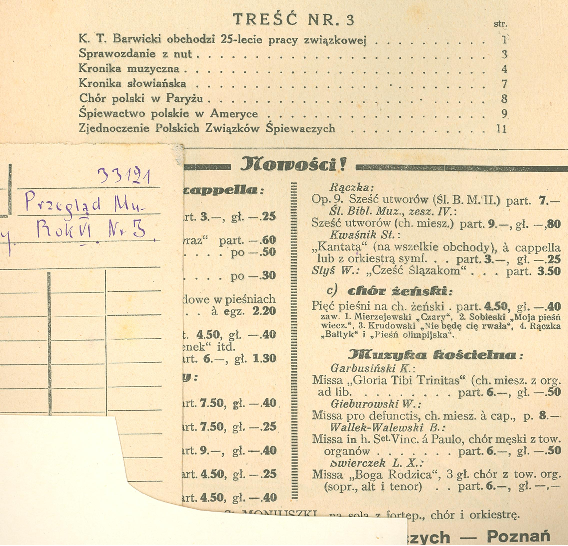 TREŚĆ NR. 3
str.
K. T. Barwicki obchodzi 25-lecie pracy związkowej . . . . . . . . . 1
Sprawozdanie z nut . . . . . . . . . . . . . . . . . . . . . 3
Kronika muzyczna . . . . . . . . . . . . . . . . . . . . . 4
Kronika słowiańska . . . . . . . . . . . . . . . . . . . . . 7
Chór polski w Paryżu . . . . . . . . . . . . . . . . . . . . 8
Śpiewactwo polskie w Ameryce . . . . . . . . . . . . . . . 9
Zjednoczenie Polskich Związków Śpiewaczych . . . . . . . . . 11
33121
Przegląd Mu-
y. Rok VI. Nr 3.
Nowości!
cappella:
rt. 3.—, gł. —.25
raz" part. —.60
. . . po —.50
. . . po —.30
dowe w pieśniach
. . . à egz. 2.20
t. 4.50, gł. —.40
enek" itd.
rt. 6.—, gł. 1.30
y:
rt. 7.50, gł. —.40
rt. 7.50, gł. —.25
rt. 9.—, gł. —.40
rt. 4.50, gł. —.25
rt. 4.50, gł. —.40
Rączka:
Op. 9. Sześć utworów (Śl. B. M. II.) part. 7.—
Śl. Bibl. Muz., zesz. IV.:
Sześć utworów (ch. miesz.) part. 9.—, gł. —,80
Kwaśnik St.:
„Kantata" (na wszelkie obchody), à cappella
lub z orkiestrą symf. . . part. 3.—, gł. —.25
Styś W.: „Cześć Ślązakom" . . . . part. 3.50
c) chór żeński:
Pięć pieśni na ch. żeński . part. 4.50, gł. —.40
zaw. 1. Mierzejewski „Czary", 2. Sobieski „Moja pieśń
wiecz.", 3. Krudowski „Nie będę cię rwała", 4. Rączka
„Bałtyk" i „Pieśń olimpijska".
Muzyka kościelna:
Garbusiński K.:
Missa „Gloria Tibi Trinitas" (ch. miesz. z org.
ad lib. . . . . . . . . part. 6.—, gł. —.50
Gieburowski W.:
Missa pro defunctis, ch. miesz. à cap., p. 8.—
Wallek-Walewski B.:
Missa in h. Sct. Vinc. á Paulo, chór męski z tow.
organów . . . . . . . part. 6.—, gł. —.50
Świerczek L. X.:
Missa „Boga Rodzica", 3 gł. chór z tow. org.
(sopr., alt i tenor) . . part. 6.—, gł. —.—
MONIUSZKI, na sola z fortep., chór i orkiestrę.
czych — Poznań